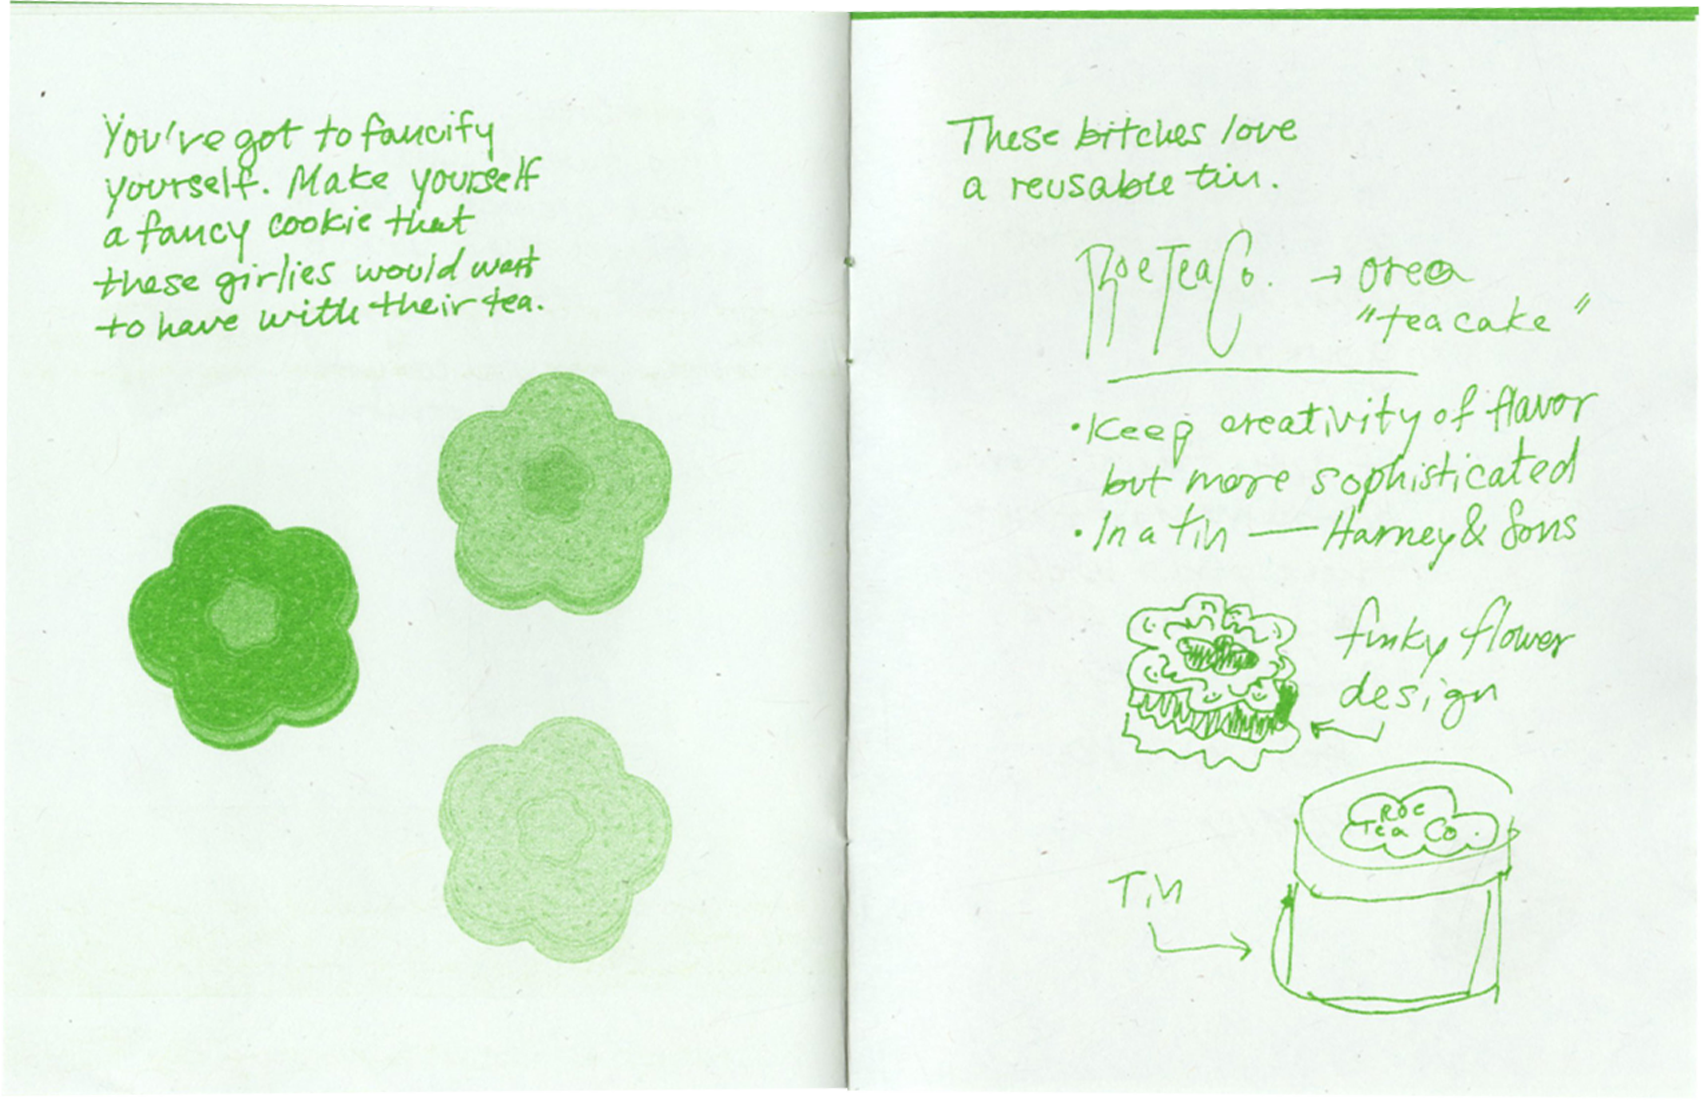 You've got to fancify
yourself. Make yourself
a fancy cookie that
these girlies would want
to have with their tea.
These bitches love
a reusable tin.
Roe Tea Co. → oreo
"tea cake"
• Keep creativity of flavor
but more sophisticated
• In a tin — Harney & Sons
funky flower
design
Roe
Tea Co.
Tin